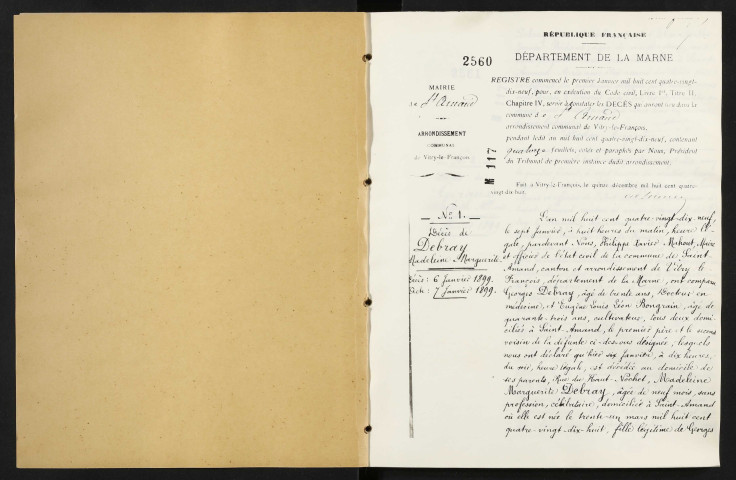 RÉPUBLIQUE FRANÇAISE
DÉPARTEMENT DE LA MARNE
2560
MAIRIE
de St Amand
ARRONDISSEMENT
COMMUNAL
de Vitry-le-François
REGISTRE commencé le premier Janvier mil huit cent quatre-vingt-
dix-neuf, pour, en exécution du Code civil, Livre Ier, Titre II,
Chapitre IV, servir à constater les DÉCÈS qui auront lieu dans la
commune de St Amand
arrondissement communal de Vitry-le-François,
pendant ledit an mil huit cent quatre-vingt-dix-neuf, contenant
quatorze feuillets, cotés et paraphés par Nous, Président
du Tribunal de première instance dudit arrondissement.
Fait à Vitry-le-François, le quinze décembre mil huit cent quatre-
vingt-dix-huit.
M 117
No 1.
Décès de
Debray
Madeleine Marguerite
Décès : 6 Janvier 1899.
Acte : 7 Janvier 1899.
L'an mil huit cent quatre-vingt-dix-neuf,
le sept Janvier, à huit heures du matin, heure lé-
gale, pardevant Nous, Philippe Xavier Mahout, Maire
et officier de l'état civil de la commune de Saint
Amand, canton et arrondissement de Vitry le
François, département de la Marne, ont comparu
Georges Debray, âgé de trente ans, Docteur en
médecine, et Eugène Louis Léon Bongrain, âgé de
quarante-trois ans, cultivateur, tous deux domi-
ciliés à Saint-Amand, le premier père et le second
voisin de la défunte ci-dessous désignée ; lesquels
nous ont déclaré qu'hier six Janvier, à dix heures,
du soir, heure légale, est décédée au domicile de
ses parents, Rue du Haut-, Madeleine
Marguerite Debray, âgée de neuf mois, sans
profession, célibataire, domiciliée à Saint-Amand
où elle est née le trente-un mars mil huit cent
quatre-vingt-dix-huit, fille légitime de Georges